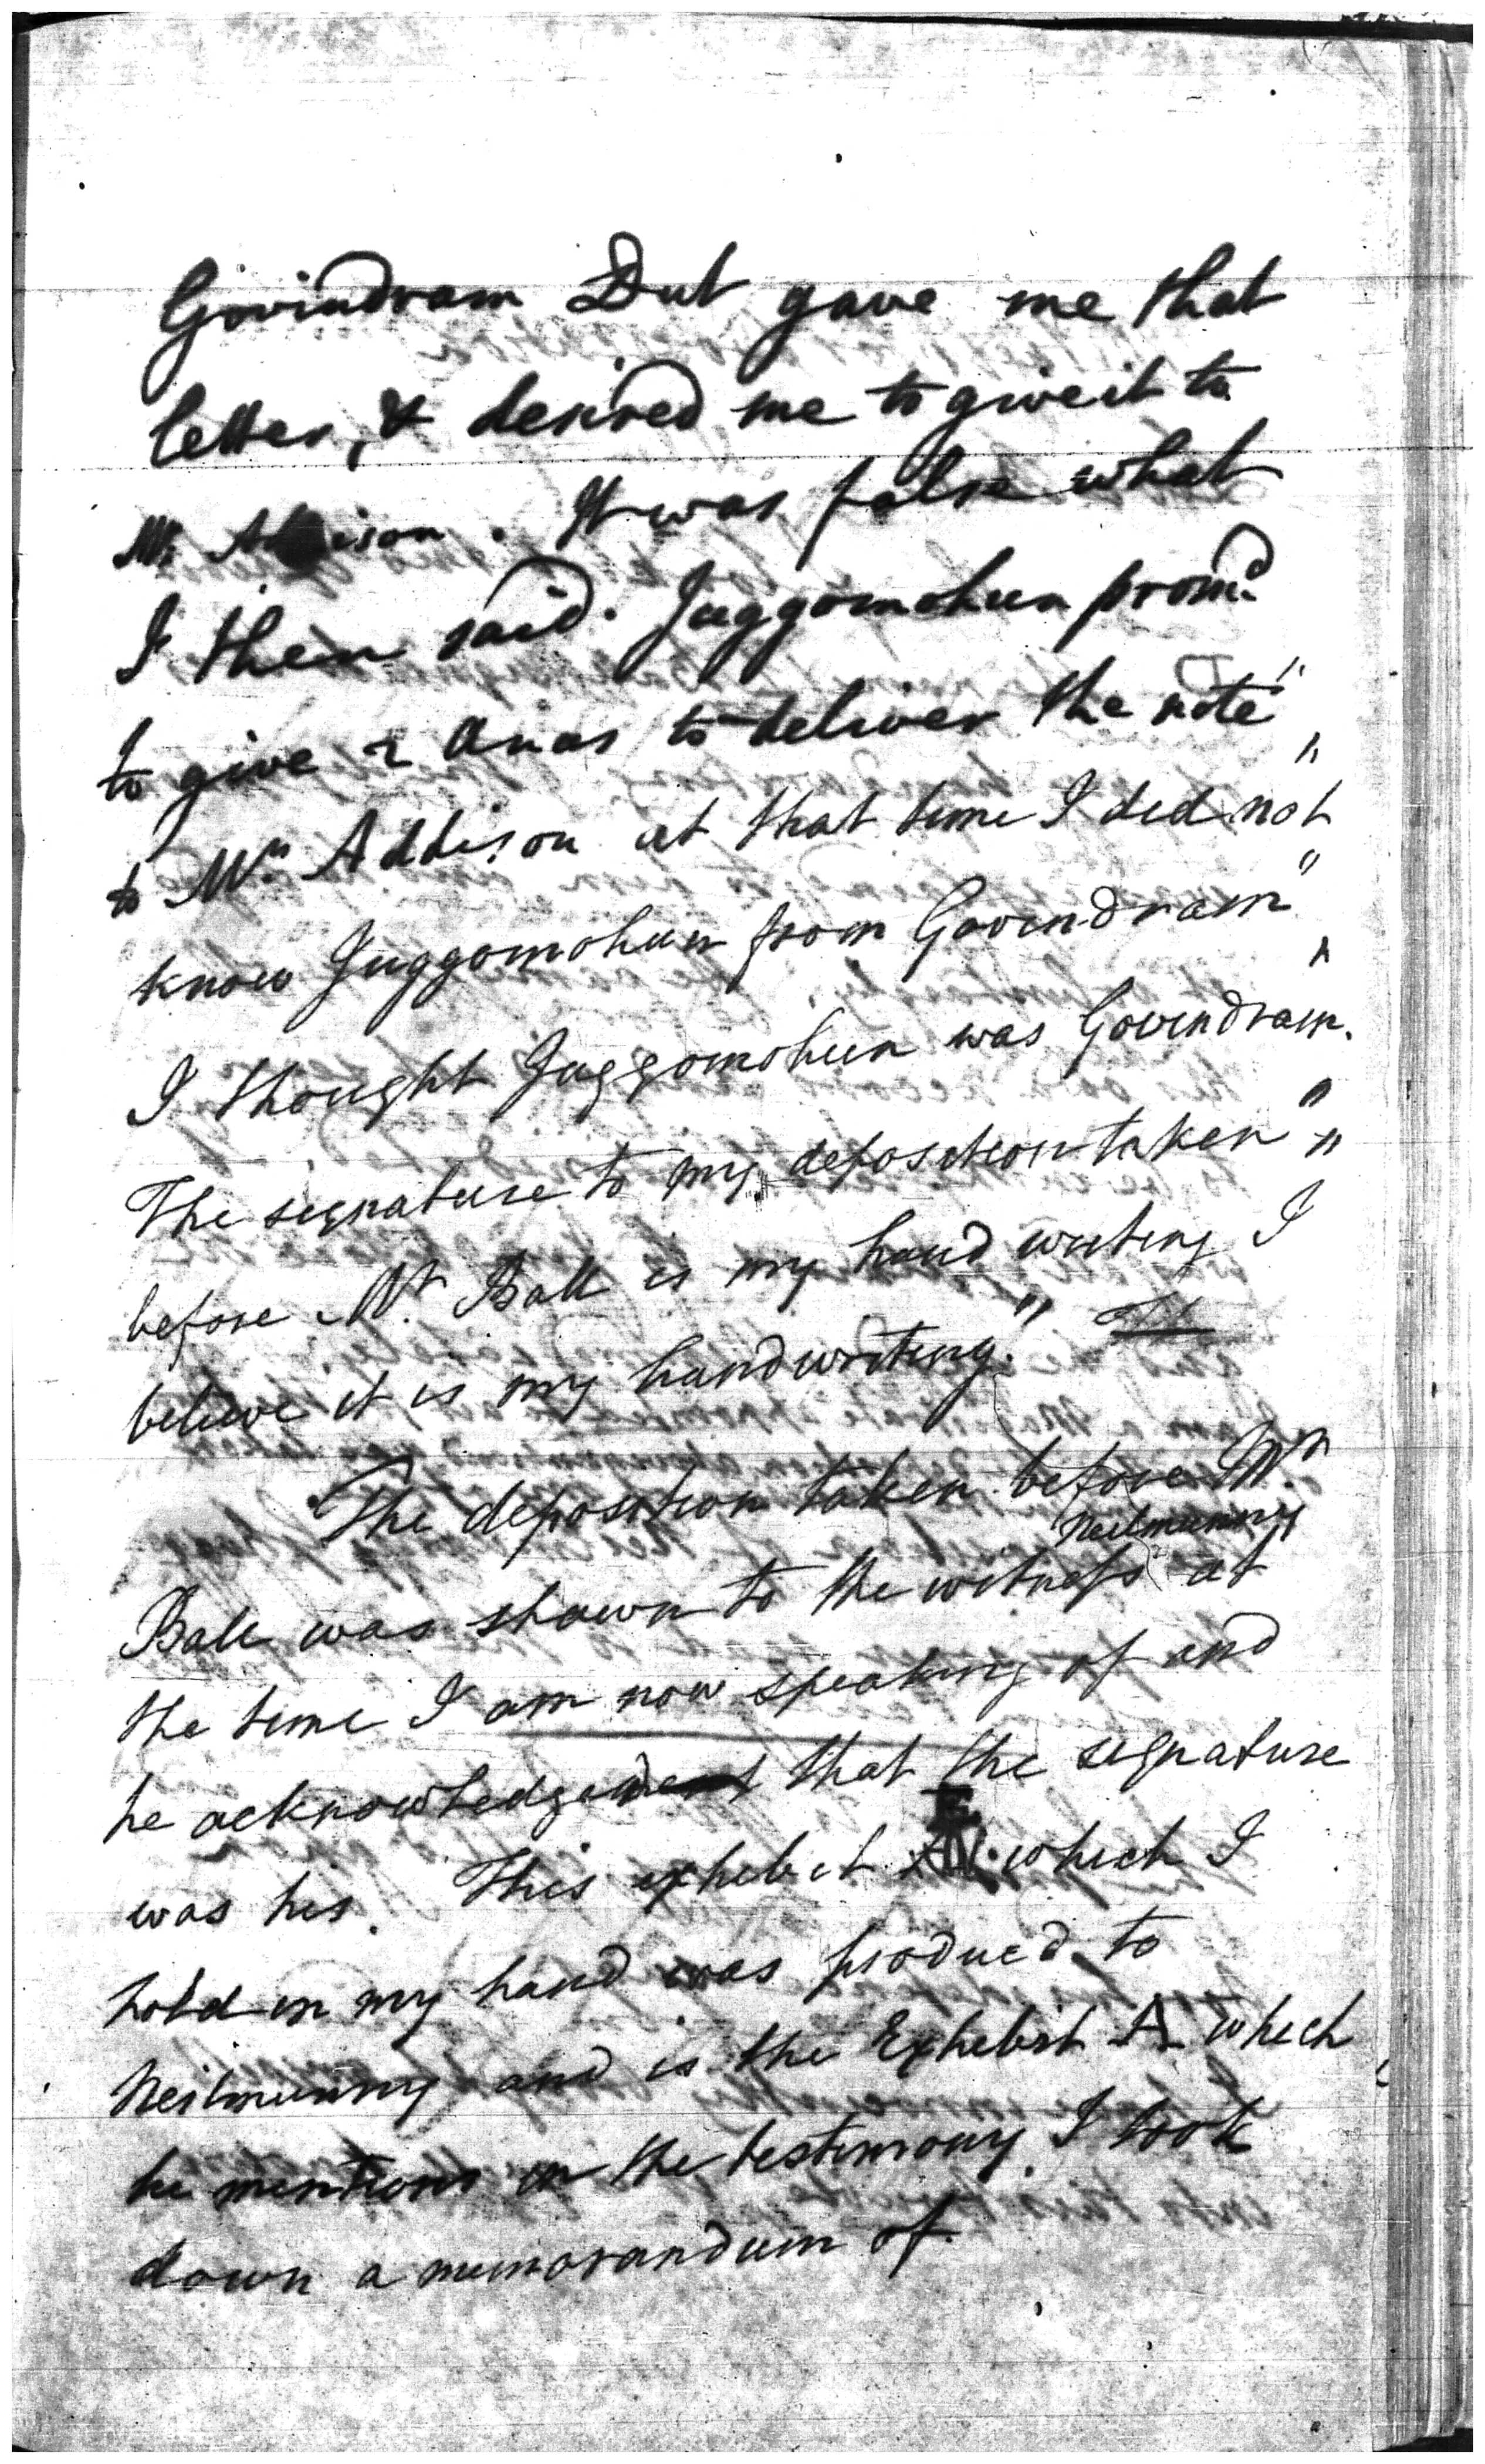 Govindram Dut gave me that
letter, & desired me to give it to
Mr. Addison. It was false what
I then said. Juggomohun promd.
to give 2 Anas to deliver the note "
to Mr. Addison at that time I did not "
know Juggomohun from Govindram "
I thought Juggomohun was Govindram. "
The signature to my deposition taken "
before Mr. Ball is my hand writing I "
believe it is my handwriting." Th
The deposition taken before Mr
Neilmunny
Ball was shown to the witness at
the time I am now speaking of and
he acknowledged that the signature
was his. This exhibit E. which I
hold in my hand was produced to
Neilmunny and is the Exhibit A which
he mentions in the testimony I took
down a memorandum of.